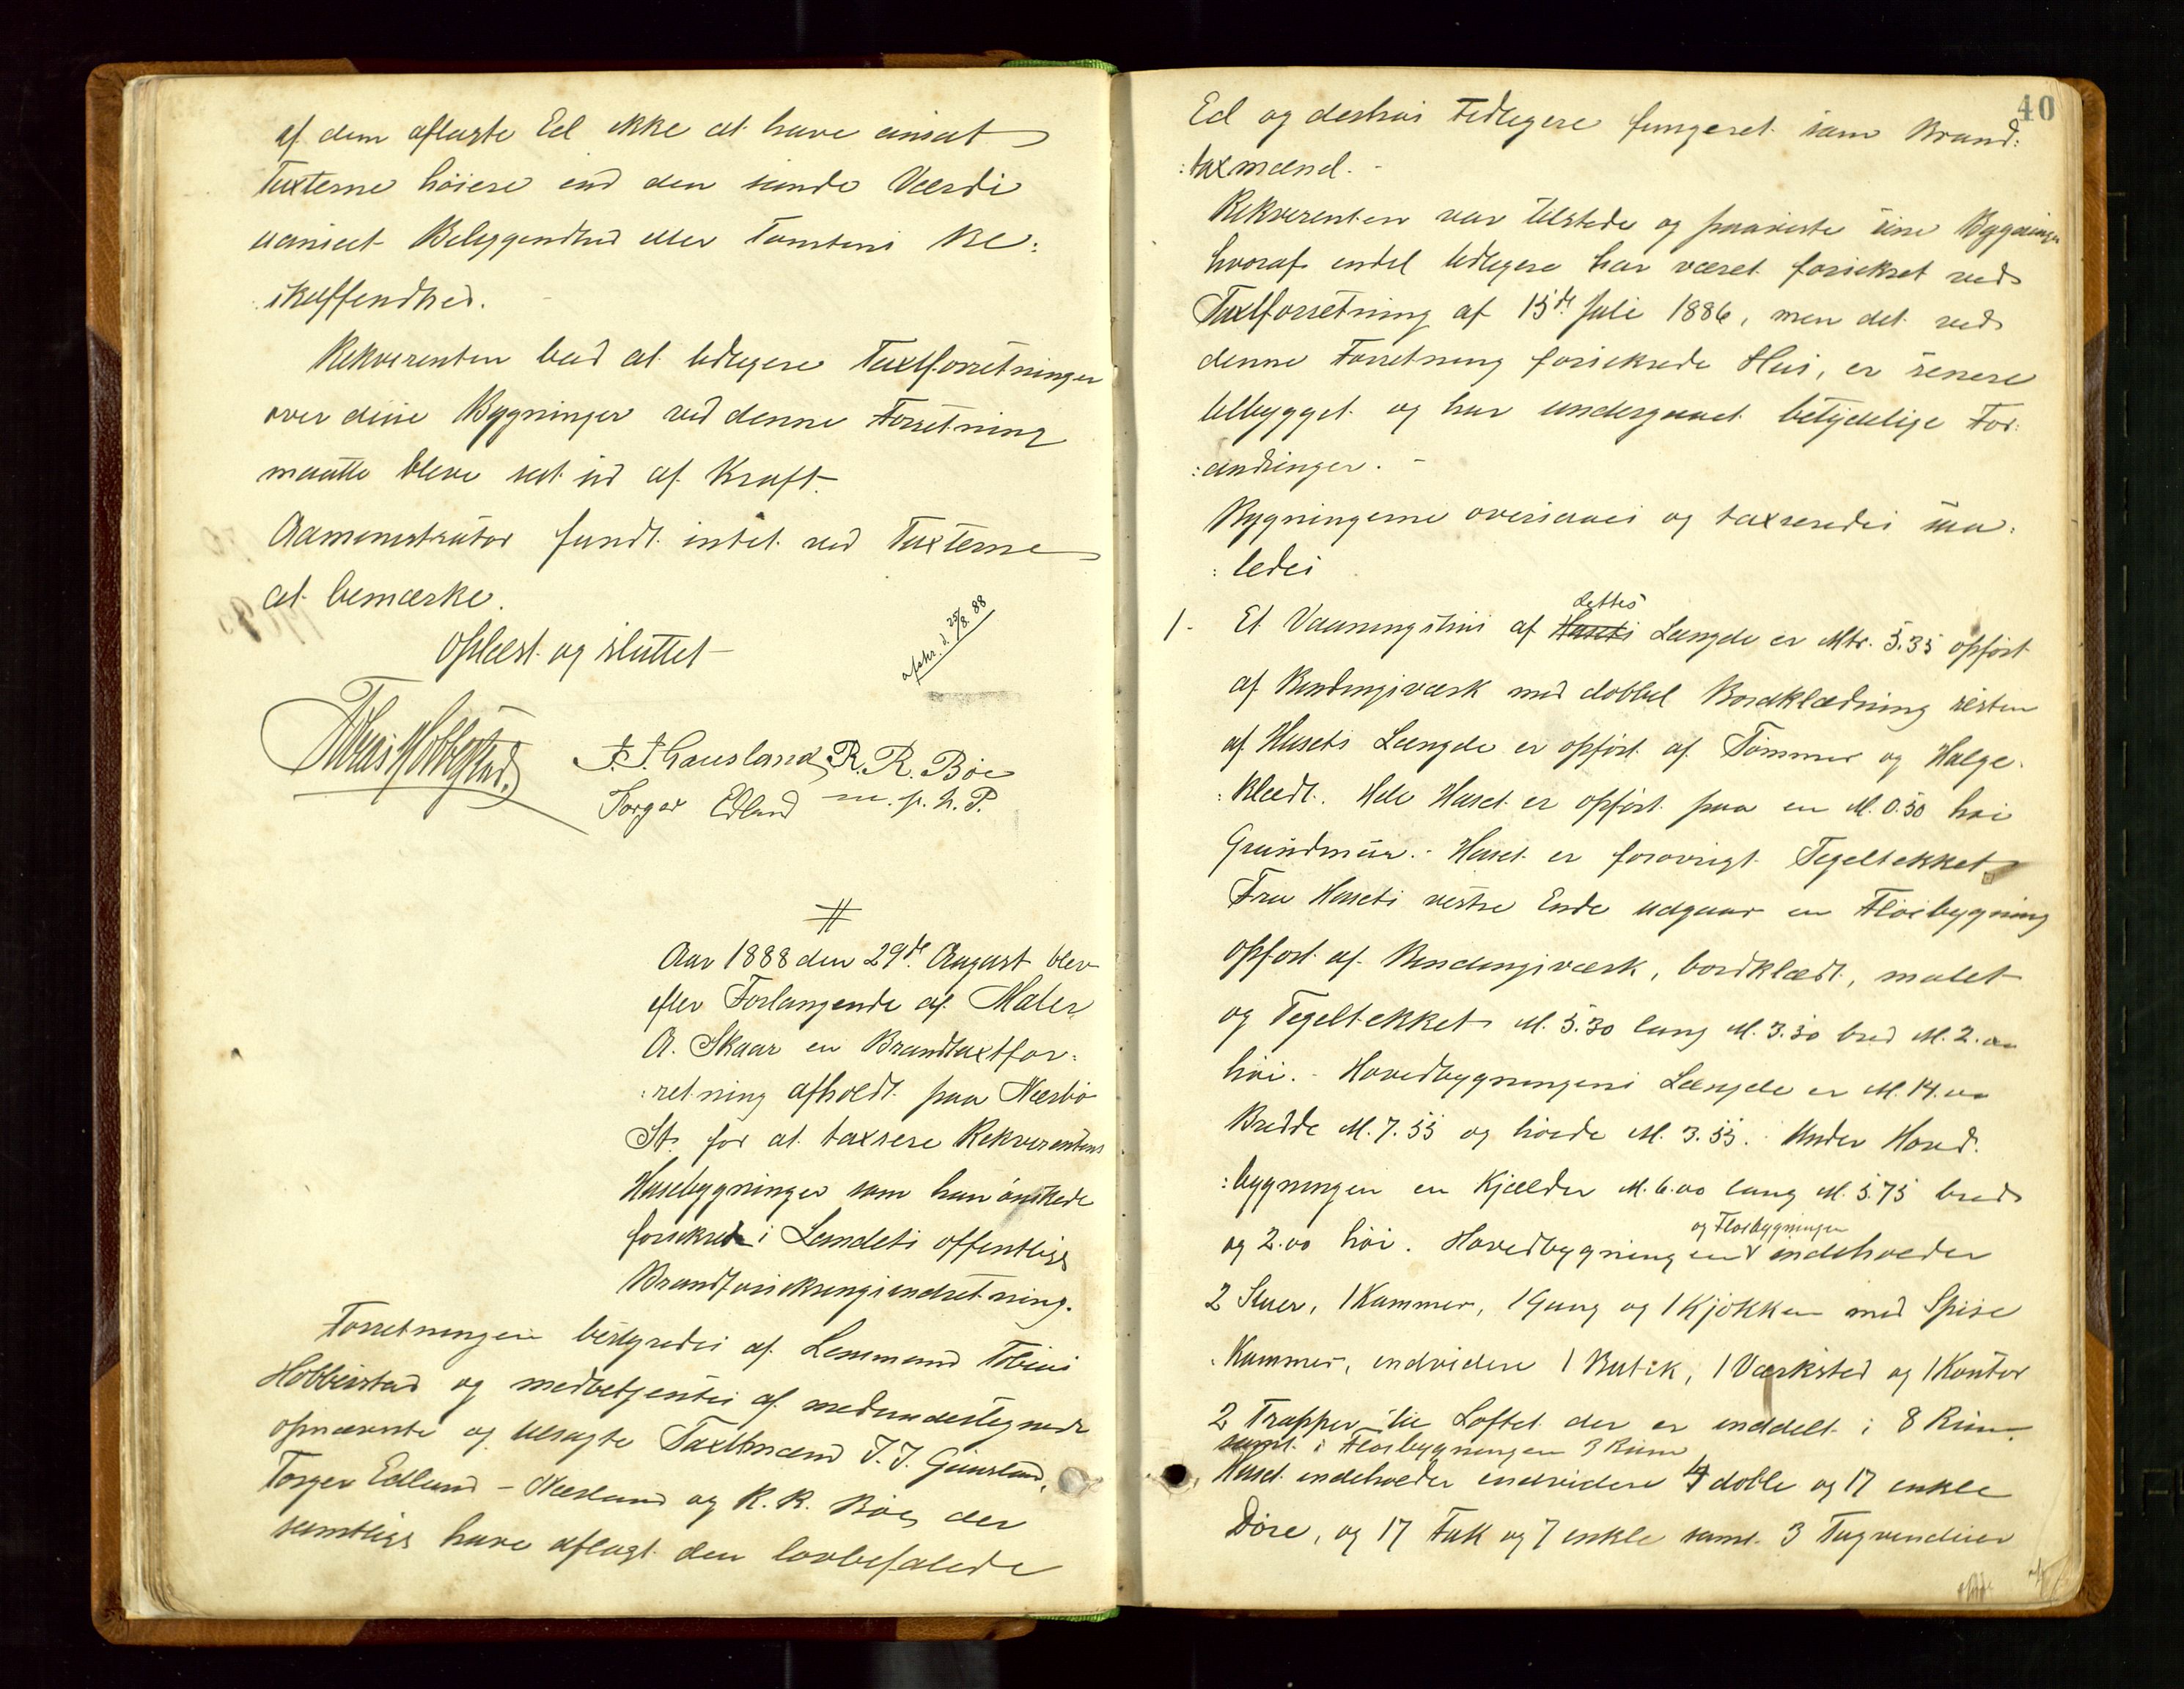 af dem aflagte Ed ikke at have ansat
Taxterne höiere end den sande Værdi
uanseet Beliggenhed eller Tomtens Be:
:skaffenhed.
Rekvirenten bad at tidligere Taxtforretninger
over disse Bygninger ved denne Forretning
maatte blive sat ud af Kraft.
Administrator fandt intet ved Taxterne
at bemærke.
Oplæst og sluttet
afskr. d. 25/8. 88
Tobias Hobbestad.
J. J. Gausland R. R. Böe
Torger Edland m. p. h. P.
#
Aar 1888 den 29de August blev
efter Forlangende af Maler
A. Skaar en Brandtaxtfor:
:retning afholdt paa Nærbö
St. for at taxsere Rekvirentens
Husebygninger som han önskede
forsikrede i Landets offentlige
Brandforsikringsindretning.
Forretningen bestyredes af Lensmand Tobias
Hobberstad og medbetjentes af medundertegnede
opnævnte og tilsagte Taxtmænd J. J. Gausland,
Torger Edland - Næsland og R. R. Böe, der
samtlige have aflagt den lovbefalede
40
Ed og desuden tidligere fungeret som Brand:
:taxmænd. -
Rekvirenten var tilstede og paaviste sine Bygninger
hvoraf endel tidligere har været forsikret ved
Taxtforretning af 15de Juli 1886, men det ved
denne Forretning forsikrede Hus, er senere
tilbygget og har undergaaet betydelige For:
:andringer. -
Bygningerne oversaaes og taxseredes saa:
:ledes
1. Et Vaaningshus af
dettes
Husets Længde er Mtr. 5.35 opfört
af Bindingsværk med dobbel Bordklædning resten
af Husets Længde er opfört af Tömmer og Halge.
:klædt. Hele Huset er opfört paa en M. 0.50 höi
Grundmuur. - Huset er forövrigt Tegeltekket
Fra Husets vestre Ende udgaar en Flöibygning
opfört af Bindingsværk, bordklædt, malet
og Tegeltekket M. 5.30 lang M. 3.30 bred M. 2.00
höi. - Hovedbygningens Længde er M. 14.00
Bredde M. 7.55 og höide M. 3.55. Under Hoved:
:bygningen en Kjælder M. 6.00 lang M. 5.75 bred
og Flöibygningen
og 2.00 höi. Hovedbygningen indeholder
2 Stuer, 1 Kammer, 1 Gang og 1 Kjökken med Spise
:Kammer, endvidere 1 Butik, 1 Værksted og 1 Kontor
2 Trapper til Loftet der er inddelt i 8 Rum
samt i Flöibygningen 3 Rum
Huset indeholder endvidere 4 doble og 17 enkle
Döre, og 17 Fak og 7 enkle samt 3 Tagvinduer